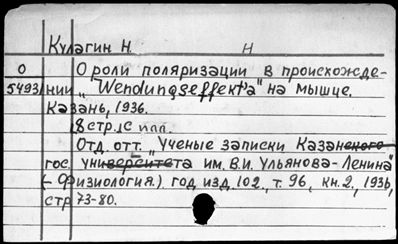 Кулагин Н. Н
О О роли поляризации в происхожде-
5493 нии "Wendungseffekt'а" на мышце.
Казань, 1936.
8 стр. с илл.
Отд. отт. "Ученые записки Казанского
гос. университета им. В.И. Ульянова-Ленина"
(-Физиология.) год изд. 102, т. 96, кн. 2, 1936,
стр 73-80.